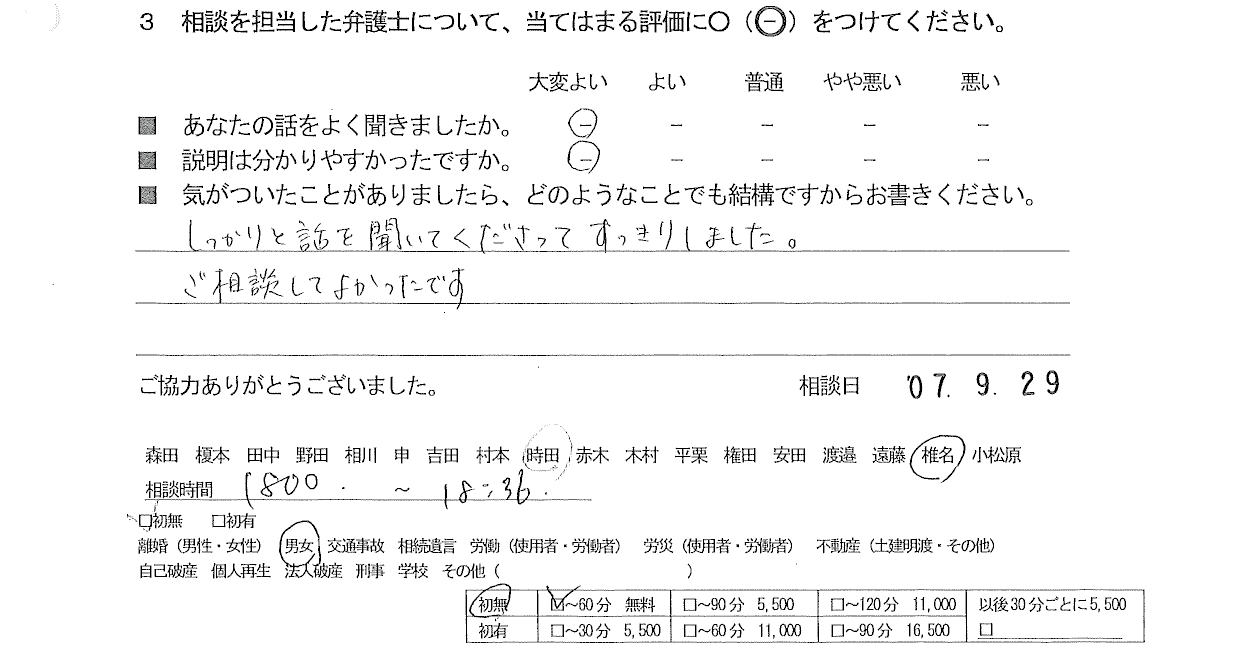 3 相談を担当した弁護士について、当てはまる評価に〇(㊀)をつけてください。
大変よい よい 普通 やや悪い 悪い
■ あなたの話をよく聞きましたか。 － － － － －
■ 説明は分かりやすかったですか。 － － － － －
■ 気がついたことがありましたら、どのようなことでも結構ですからお書きください。
しっかりと話を聞いてくださってすっきりしました。
ご相談してよかったです
ご協力ありがとうございました。 相談日 '07. 9. 29
森田 榎本 田中 野田 相川 申 吉田 村本 時田 赤木 木村 平栗 権田 安田 渡邉 遠藤 椎名 小松原
相談時間 1800. ～ 18:36.
□初無 □初有
離婚(男性・女性) 男女 交通事故 相続遺言 労働(使用者・労働者) 労災(使用者・労働者) 不動産(土建明渡・その他)
自己破産 個人再生 法人破産 刑事 学校 その他( )
初無 ☑～60分 無料 □～90分 5,500 □～120分 11,000 以後30分ごとに5,500
初有 □～30分 5,500 □～60分 11,000 □～90分 16,500 □